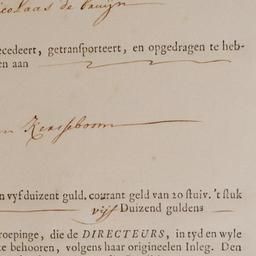 icolaas de bruijn
ecedeert, getransporteert, en opgedragen te heb-
en aan
n Kersseboom
n vyfduizent guld. courant geld van 20 stuiv. 't stuk
vijf Duizend guldens
roepinge, die de DIRECTEURS, in tyd en wyle
te behooren, volgens haar origineelen Inleg. Den